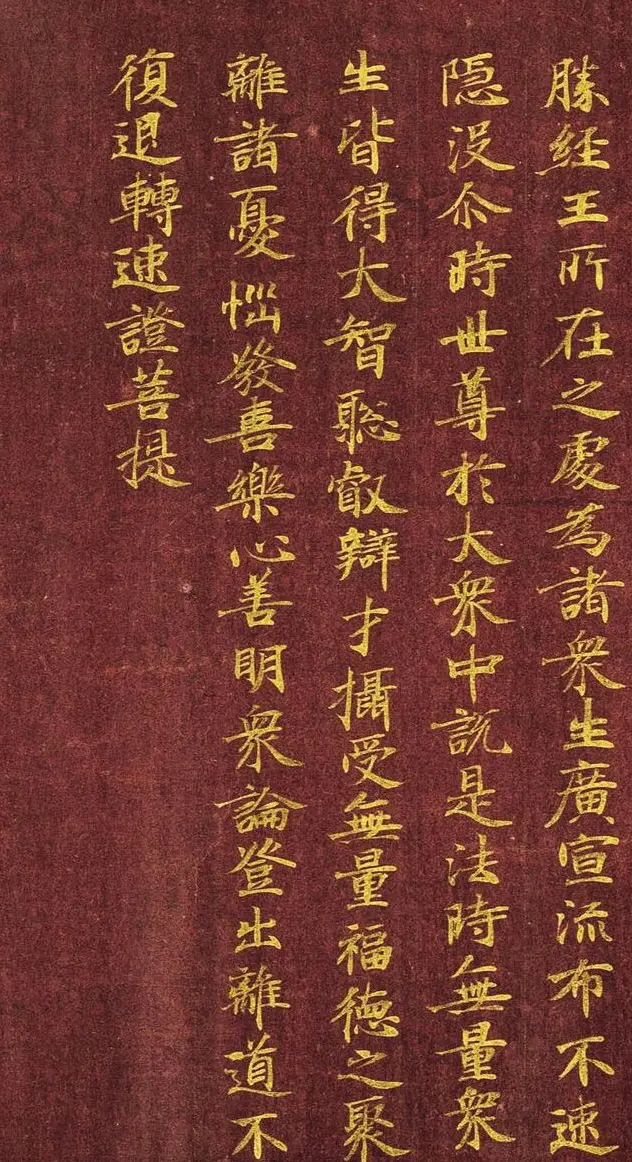 勝經王所在之處為諸衆生廣宣流布不速
隱没尒時世尊於大衆中說是法時無量衆
生皆得大智聡叡辯才攝受無量福德之聚
離諸憂惱發喜樂心善明衆論登出離道不
復退轉速證菩提